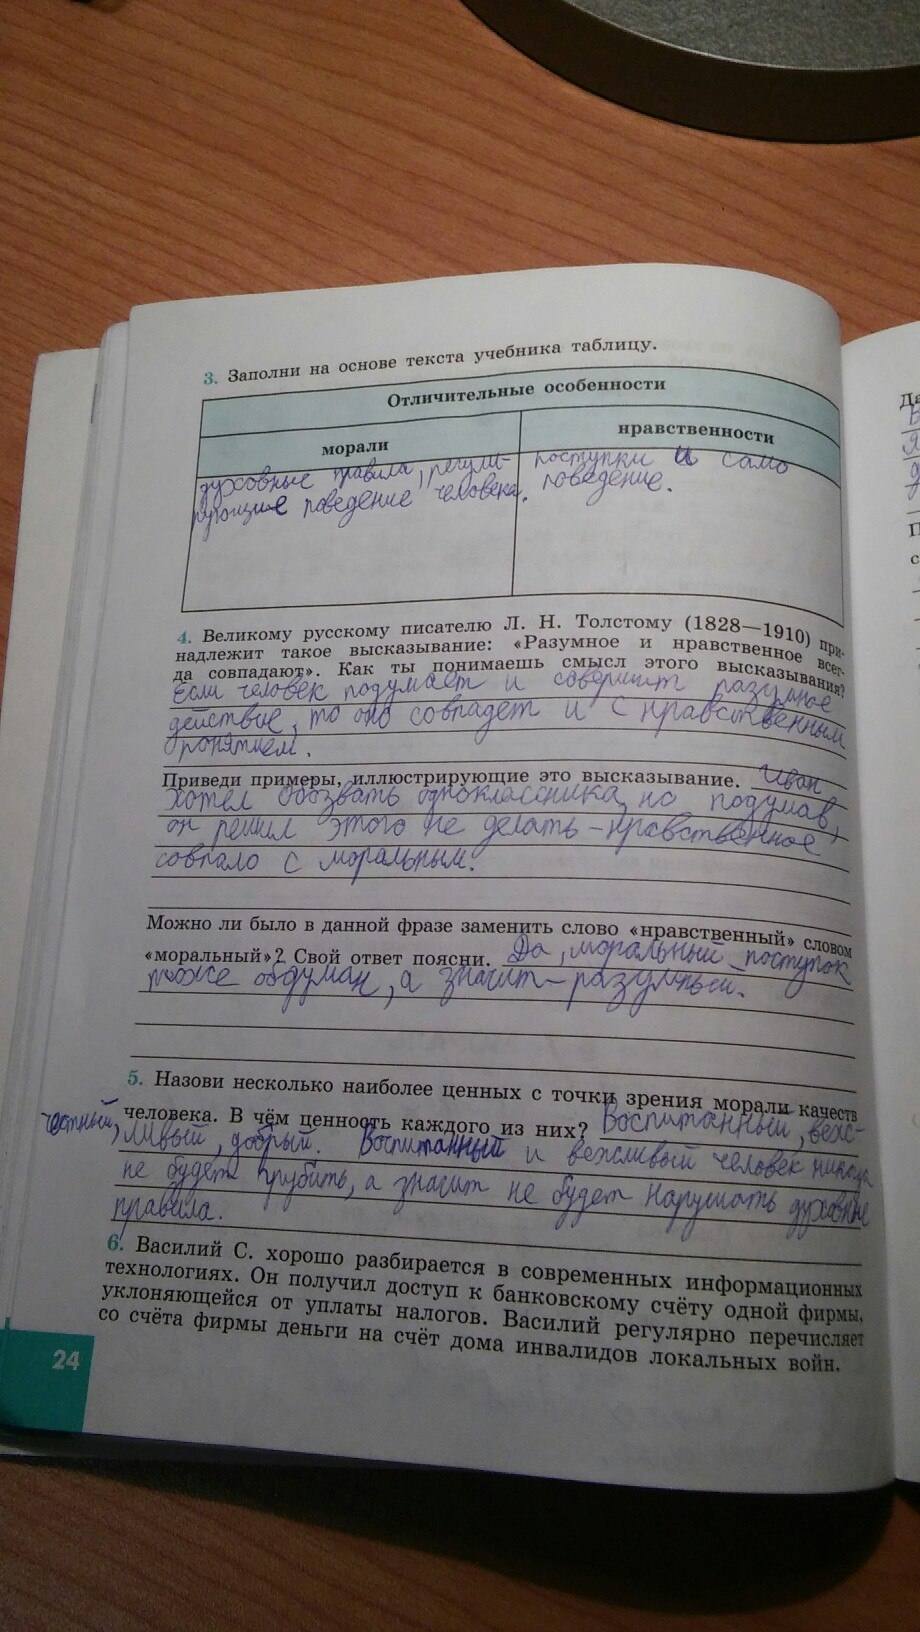 3. Заполни на основе текста учебника таблицу.
Отличительные особенности
морали
нравственности
духовные правила, регули-
рующие поведение человека.
поступки и само
поведение.
4. Великому русскому писателю Л. Н. Толстому (1828—1910) при-
надлежит такое высказывание: «Разумное и нравственное всег-
да совпадают». Как ты понимаешь смысл этого высказывания?
Если человек подумает и совершит разумное
действие, то оно совпадет и с нравственным
понятием.
Приведи примеры, иллюстрирующие это высказывание. Иван
хотел обозвать одноклассника, но подумав,
он решил этого не делать – нравственное
совпало с моральным.
Можно ли было в данной фразе заменить слово «нравственный» словом
«моральный»? Свой ответ поясни. Да, моральный поступок
тоже обдуман, а значит – разумный.
5. Назови несколько наиболее ценных с точки зрения морали качеств
человека. В чём ценность каждого из них? Воспитанный, веж-
честный, ливый, добрый. Воспитанный и вежливый человек никогда
не будет грубить, а значит не будет нарушать духовные
правила.
6. Василий С. хорошо разбирается в современных информационных
технологиях. Он получил доступ к банковскому счёту одной фирмы,
уклоняющейся от уплаты налогов. Василий регулярно перечисляет
со счёта фирмы деньги на счёт дома инвалидов локальных войн.
24
Да
П
с